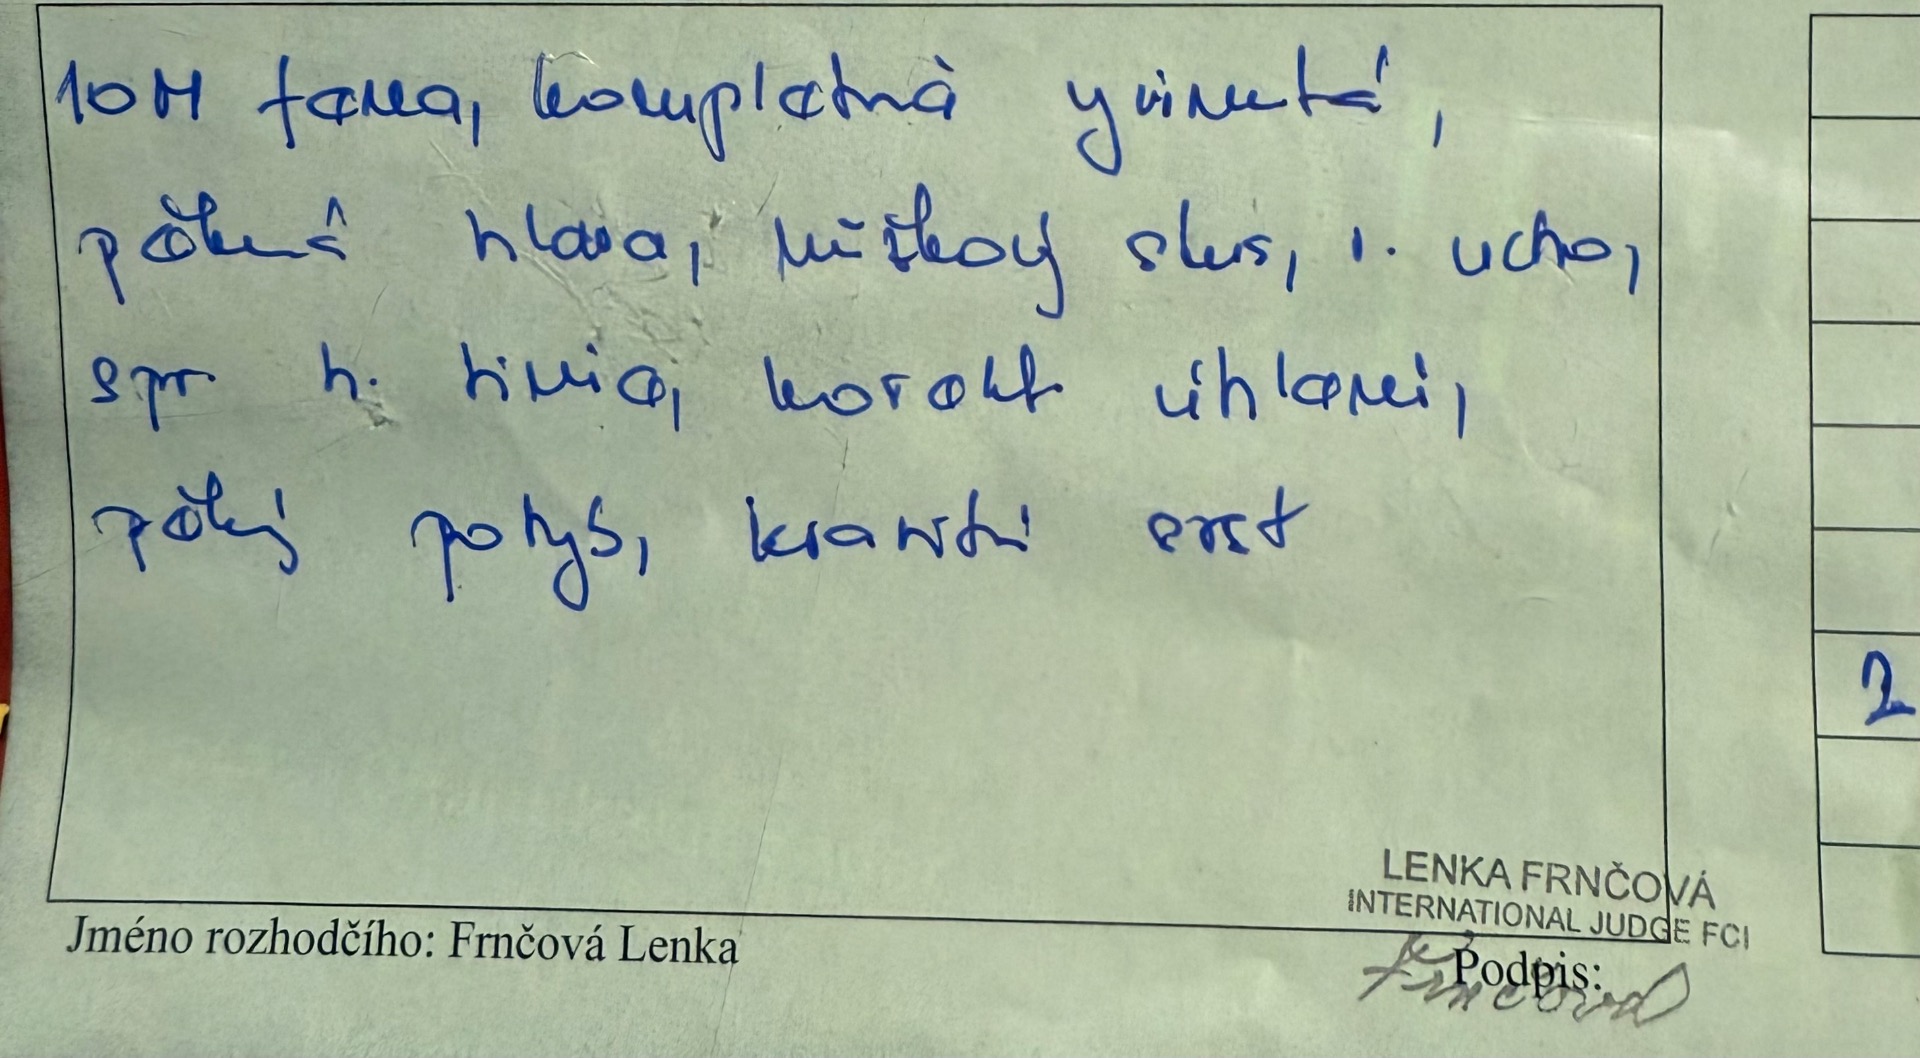 10M fena, kompletně yvinutá,
pěkná hlava, nůžkový skus, s. ucho,
spr h. linia, korekt úhlení,
pěkný pohyb, kvalitní srst
2
LENKA FRNČOVÁ
INTERNATIONAL JUDGE FCI
Jméno rozhodčího: Frnčová Lenka
Podpis:
Frnčová